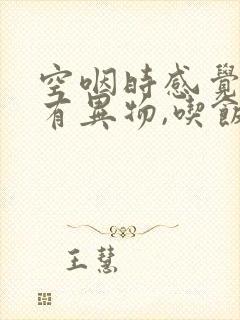 空咽时感覺
有異物,喫飯
王慧